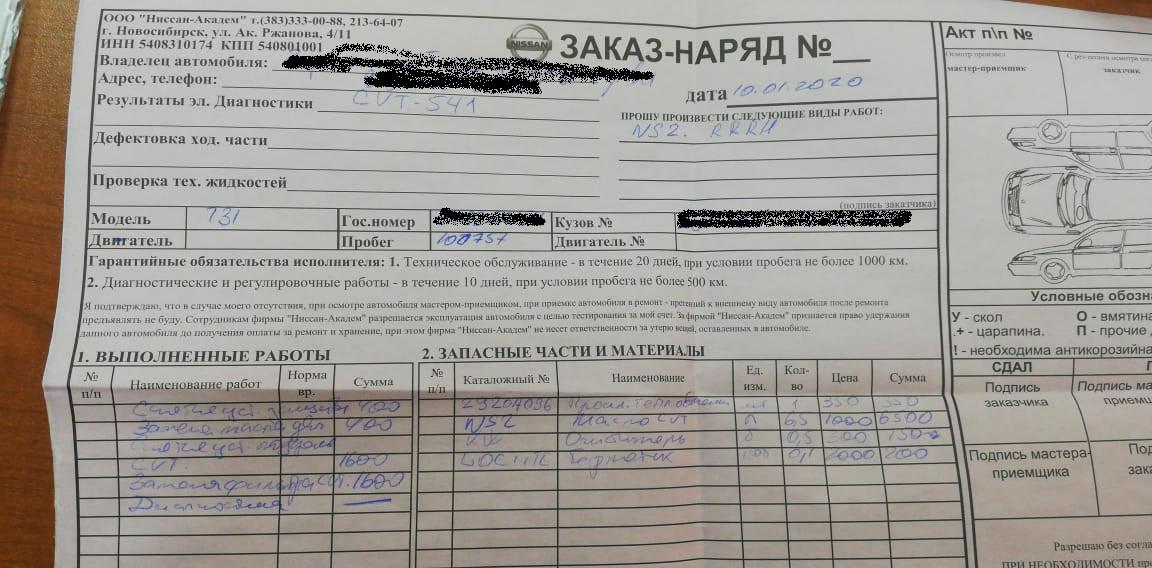 ООО "Ниссан-Академ" т.(383)333-00-88, 213-64-07
г. Новосибирск, ул. Ак. Ржанова, 4/11
ИНН 5408310174 КПП 540801001
Владелец автомобиля:
Адрес, телефон:
Результаты эл. Диагностики CVT-541
Дефектовка ход. части
Проверка тех. жидкостей
NISSAN
ЗАКАЗ-НАРЯД №
дата 10.01.2020
ПРОШУ ПРОИЗВЕСТИ СЛЕДУЮЩИЕ ВИДЫ РАБОТ:
NS2.
(подпись заказчика)
Модель Т31 Гос.номер Кузов №
Двигатель Пробег 100757 Двигатель №
Гарантийные обязательства исполнителя: 1. Техническое обслуживание - в течение 20 дней, при условии пробега не более 1000 км.
2. Диагностические и регулировочные работы - в течение 10 дней, при условии пробега не более 500 км.
Я подтверждаю, что в случае моего отсутствия, при осмотре автомобиля мастером-приемщиком, при приемке автомобиля в ремонт - претензий к внешнему виду автомобиля после ремонта
предъявлять не буду. Сотрудникам фирмы "Ниссан-Академ" разрешается эксплуатация автомобиля с целью тестирования за мой счет. За фирмой "Ниссан-Академ" признается право удержания
данного автомобиля до получения оплаты за ремонт и хранение, при этом фирма "Ниссан-Академ" не несет ответственности за утерю вещей, оставленных в автомобиле.
1. ВЫПОЛНЕННЫЕ РАБОТЫ
№ п/п Наименование работ Норма вр. Сумма
400
Замена масла 400
CVT. 1600
Замена фильтра 1600
Диагностика
2. ЗАПАСНЫЕ ЧАСТИ И МАТЕРИАЛЫ
№ п/п Каталожный № Наименование Ед. изм. Кол-во Цена Сумма
Прокл. 1 350 350
NS2 Масло CVT л 6,5 1000 6500
Очиститель 0,5
Герметик 0,1 2000 200
Акт п\п №
Осмотр произвел
мастер-приемщик
заказчик
Условные обозн
У - скол О - вмятина
.+ - царапина. П - прочие
! - необходима антикорозийна
СДАЛ
Подпись заказчика
Подпись мастера-приемщика
Разрешаю без согла
ПРИ НЕОБХОДИМОСТИ